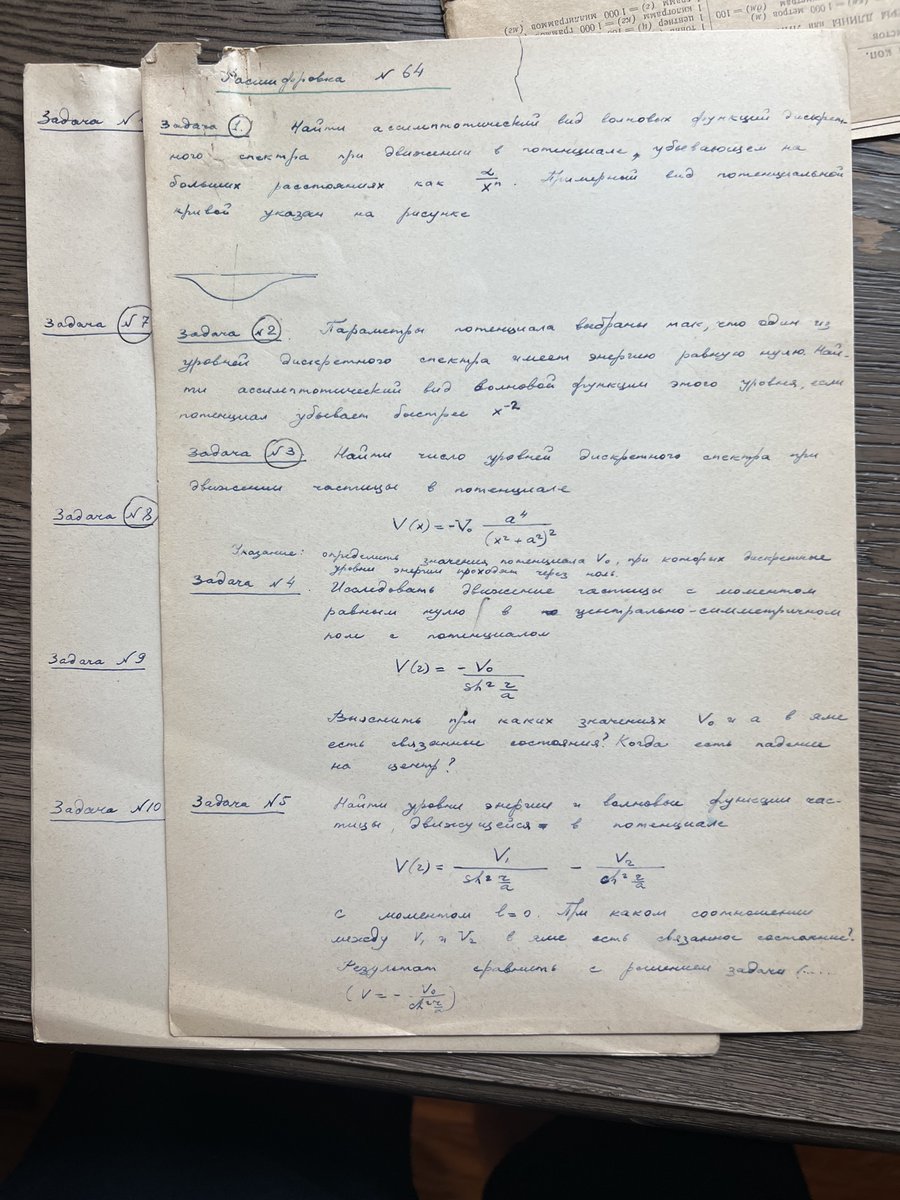 Расшифровка N 64
Задача 1. Найти ассимптотический вид волновых функций дискрет-
ного спектра при движении в потенциале, убывающем на
больших расстояниях как α/xⁿ. Примерный вид потенциальной
кривой указан на рисунке
Задача N2. Параметры потенциала выбраны так, что один из
уровней дискретного спектра имеет энергию равную нулю. Най-
ти ассимптотический вид волновой функции этого уровня, если
потенциал убывает быстрее x⁻²
Задача N3 Найти число уровней дискретного спектра при
движении частицы в потенциале
V(x) = -V₀ a⁴/(x² + a²)²
Указание: определить значения потенциала V₀, при которых дискретные
уровни энергии проходят через ноль.
Задача N4. Исследовать движение частицы с моментом
равным нулю в центрально-симметричном
поле с потенциалом
V(r) = -V₀/sh² r/a
Выяснить при каких значениях V₀ и a в яме
есть связанные состояния? Когда есть падение
на центр?
Задача N5 Найти уровни энергии и волновые функции час-
тицы, движущейся в потенциале
V(r) = V₁/sh² r/a - V₂/ch² r/a
с моментом l=0. При каком соотношении
между V₁ и V₂ в яме есть связанное состояние?
Результат сравнить с решением задачи (....
(V = - V₀/ch² r/a)
Задача N
Задача N7
Задача N8
Задача N9
Задача N10
1 килограмм (кг) = 1 000 граммов
= 1 000 миллиграммов (мг)
= 1 000 метров (м)
= 100
коп.